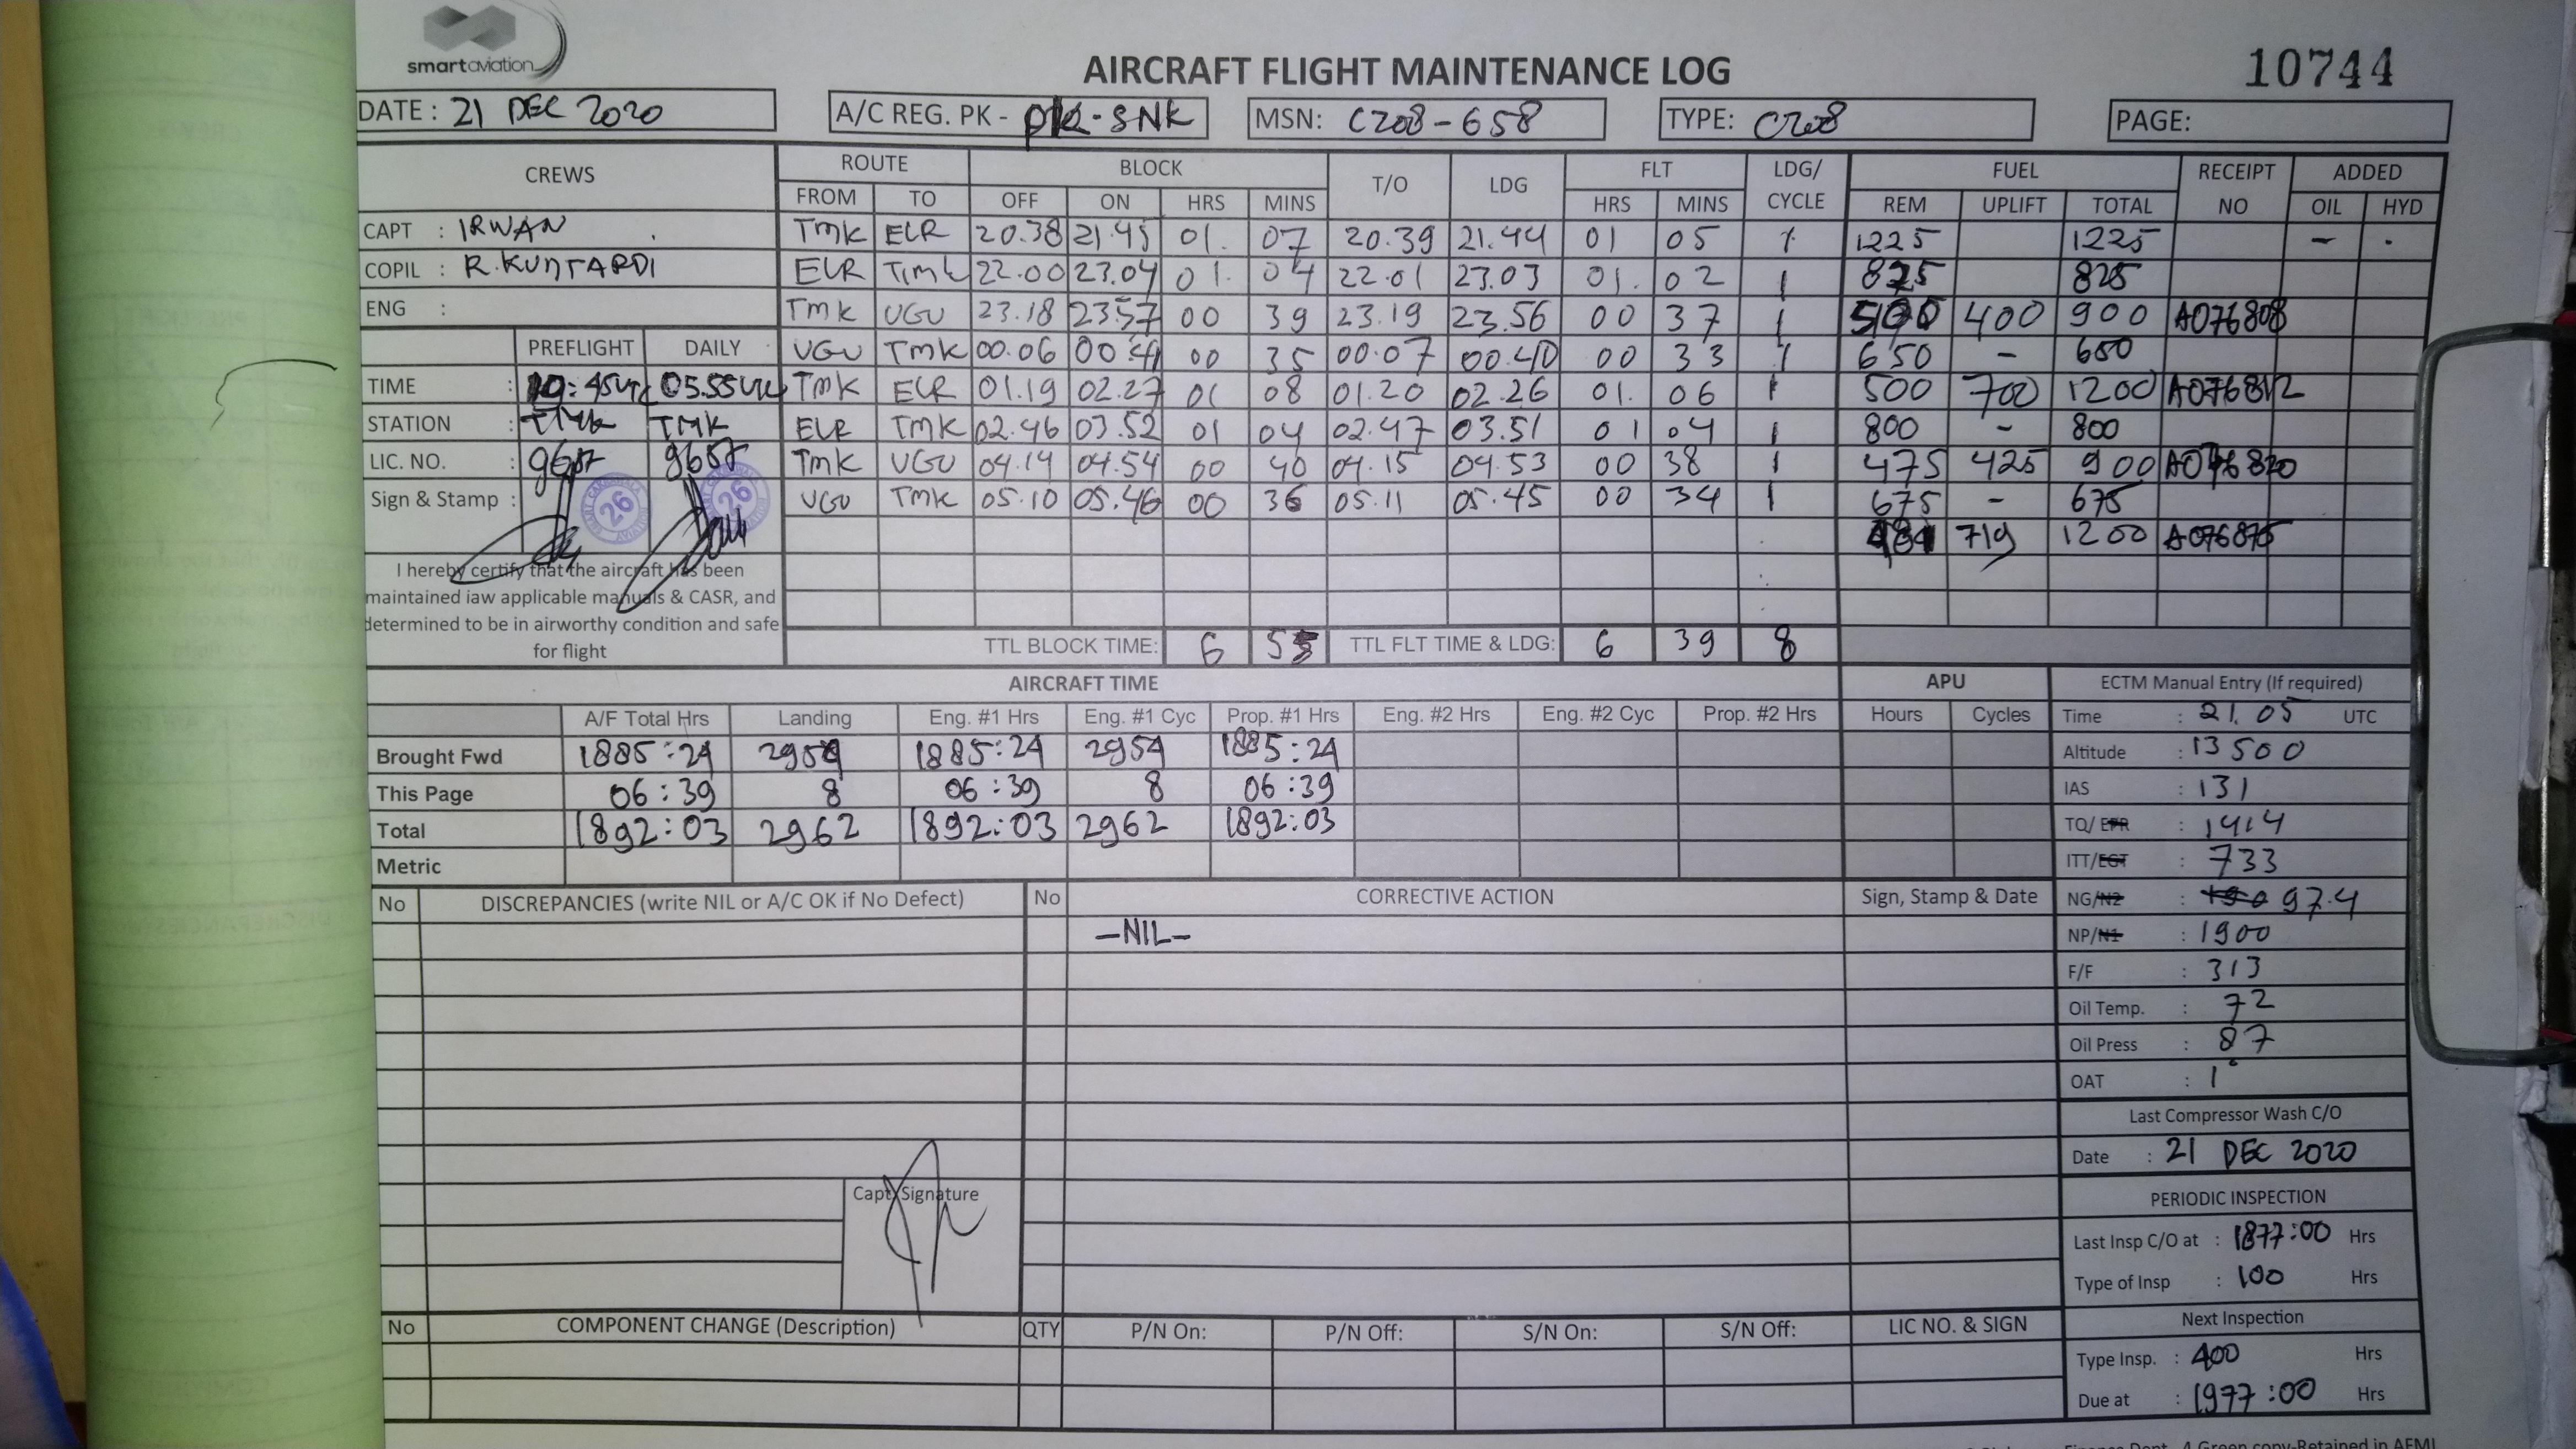 smartaviation
AIRCRAFT FLIGHT MAINTENANCE LOG
10744
DATE : 21 DEC 2020 A/C REG. PK - PK-SNK MSN: C208-658 TYPE: C208 PAGE:
CREWS ROUTE BLOCK T/O LDG FLT LDG/ CYCLE FUEL RECEIPT NO ADDED
FROM TO OFF ON HRS MINS HRS MINS REM UPLIFT TOTAL OIL HYD
CAPT : IRWAN TMK ELR 20.38 21.45 01. 07 20.39 21.44 01 05 1 1225 1225 – -
COPIL : R.KUNTARDI ELR TMK 22.00 23.04 01. 04 22.01 23.03 01. 02 1 825 825
ENG : TMK UGU 23.18 23.57 00 39 23.19 23.56 00 37 1 500 400 900 A076808
PREFLIGHT DAILY UGU TMK 00.06 00.41 00 35 00.07 00.40 00 33 1 650 – 650
TIME : :45UTC 05.55UTC TMK ELR 01.19 02.27 01 08 01.20 02.26 01. 06 1 500 700 1200 A076812
STATION : TMK TMK ELR TMK 02.46 03.52 01 04 02.47 03.51 01 04 1 800 – 800
LIC. NO. : 9657 9657 TMK UGU 04.14 04.54 00 40 04.15 04.53 00 38 1 475 425 900 A076820
Sign & Stamp : 26 26 UGU TMK 05.10 05.46 00 36 05.11 05.45 00 34 1 675 – 675
481 719 1200 A076875
I hereby certify that the aircraft has been
maintained iaw applicable manuals & CASR, and
determined to be in airworthy condition and safe
for flight
TTL BLOCK TIME: 6 55 TTL FLT TIME & LDG: 6 39 8
AIRCRAFT TIME APU ECTM Manual Entry (If required)
A/F Total Hrs Landing Eng. #1 Hrs Eng. #1 Cyc Prop. #1 Hrs Eng. #2 Hrs Eng. #2 Cyc Prop. #2 Hrs Hours Cycles Time : 21.05 UTC
Brought Fwd 1885:24 2954 1885:24 2954 1885:24 Altitude : 13500
This Page 06:39 8 06:39 8 06:39 IAS : 131
Total 1892:03 2962 1892:03 2962 1892:03 TQ/ EPR : 1414
Metric ITT/EGT : 733
No DISCREPANCIES (write NIL or A/C OK if No Defect) No CORRECTIVE ACTION Sign, Stamp & Date NG/N2 : 97.4
–NIL– NP/N1 : 1900
F/F : 313
Oil Temp. : 72
Oil Press : 87
OAT : 1°
Last Compressor Wash C/O
Date : 21 DEC 2020
Capt Signature
PERIODIC INSPECTION
Last Insp C/O at : 1877:00 Hrs
Type of Insp : 100 Hrs
Next Inspection
No COMPONENT CHANGE (Description) QTY P/N On: P/N Off: S/N On: S/N Off: LIC NO. & SIGN
Type Insp. : 400 Hrs
Due at : 1977:00 Hrs
Finance Dept. 4 Green copy-Retained in AFML